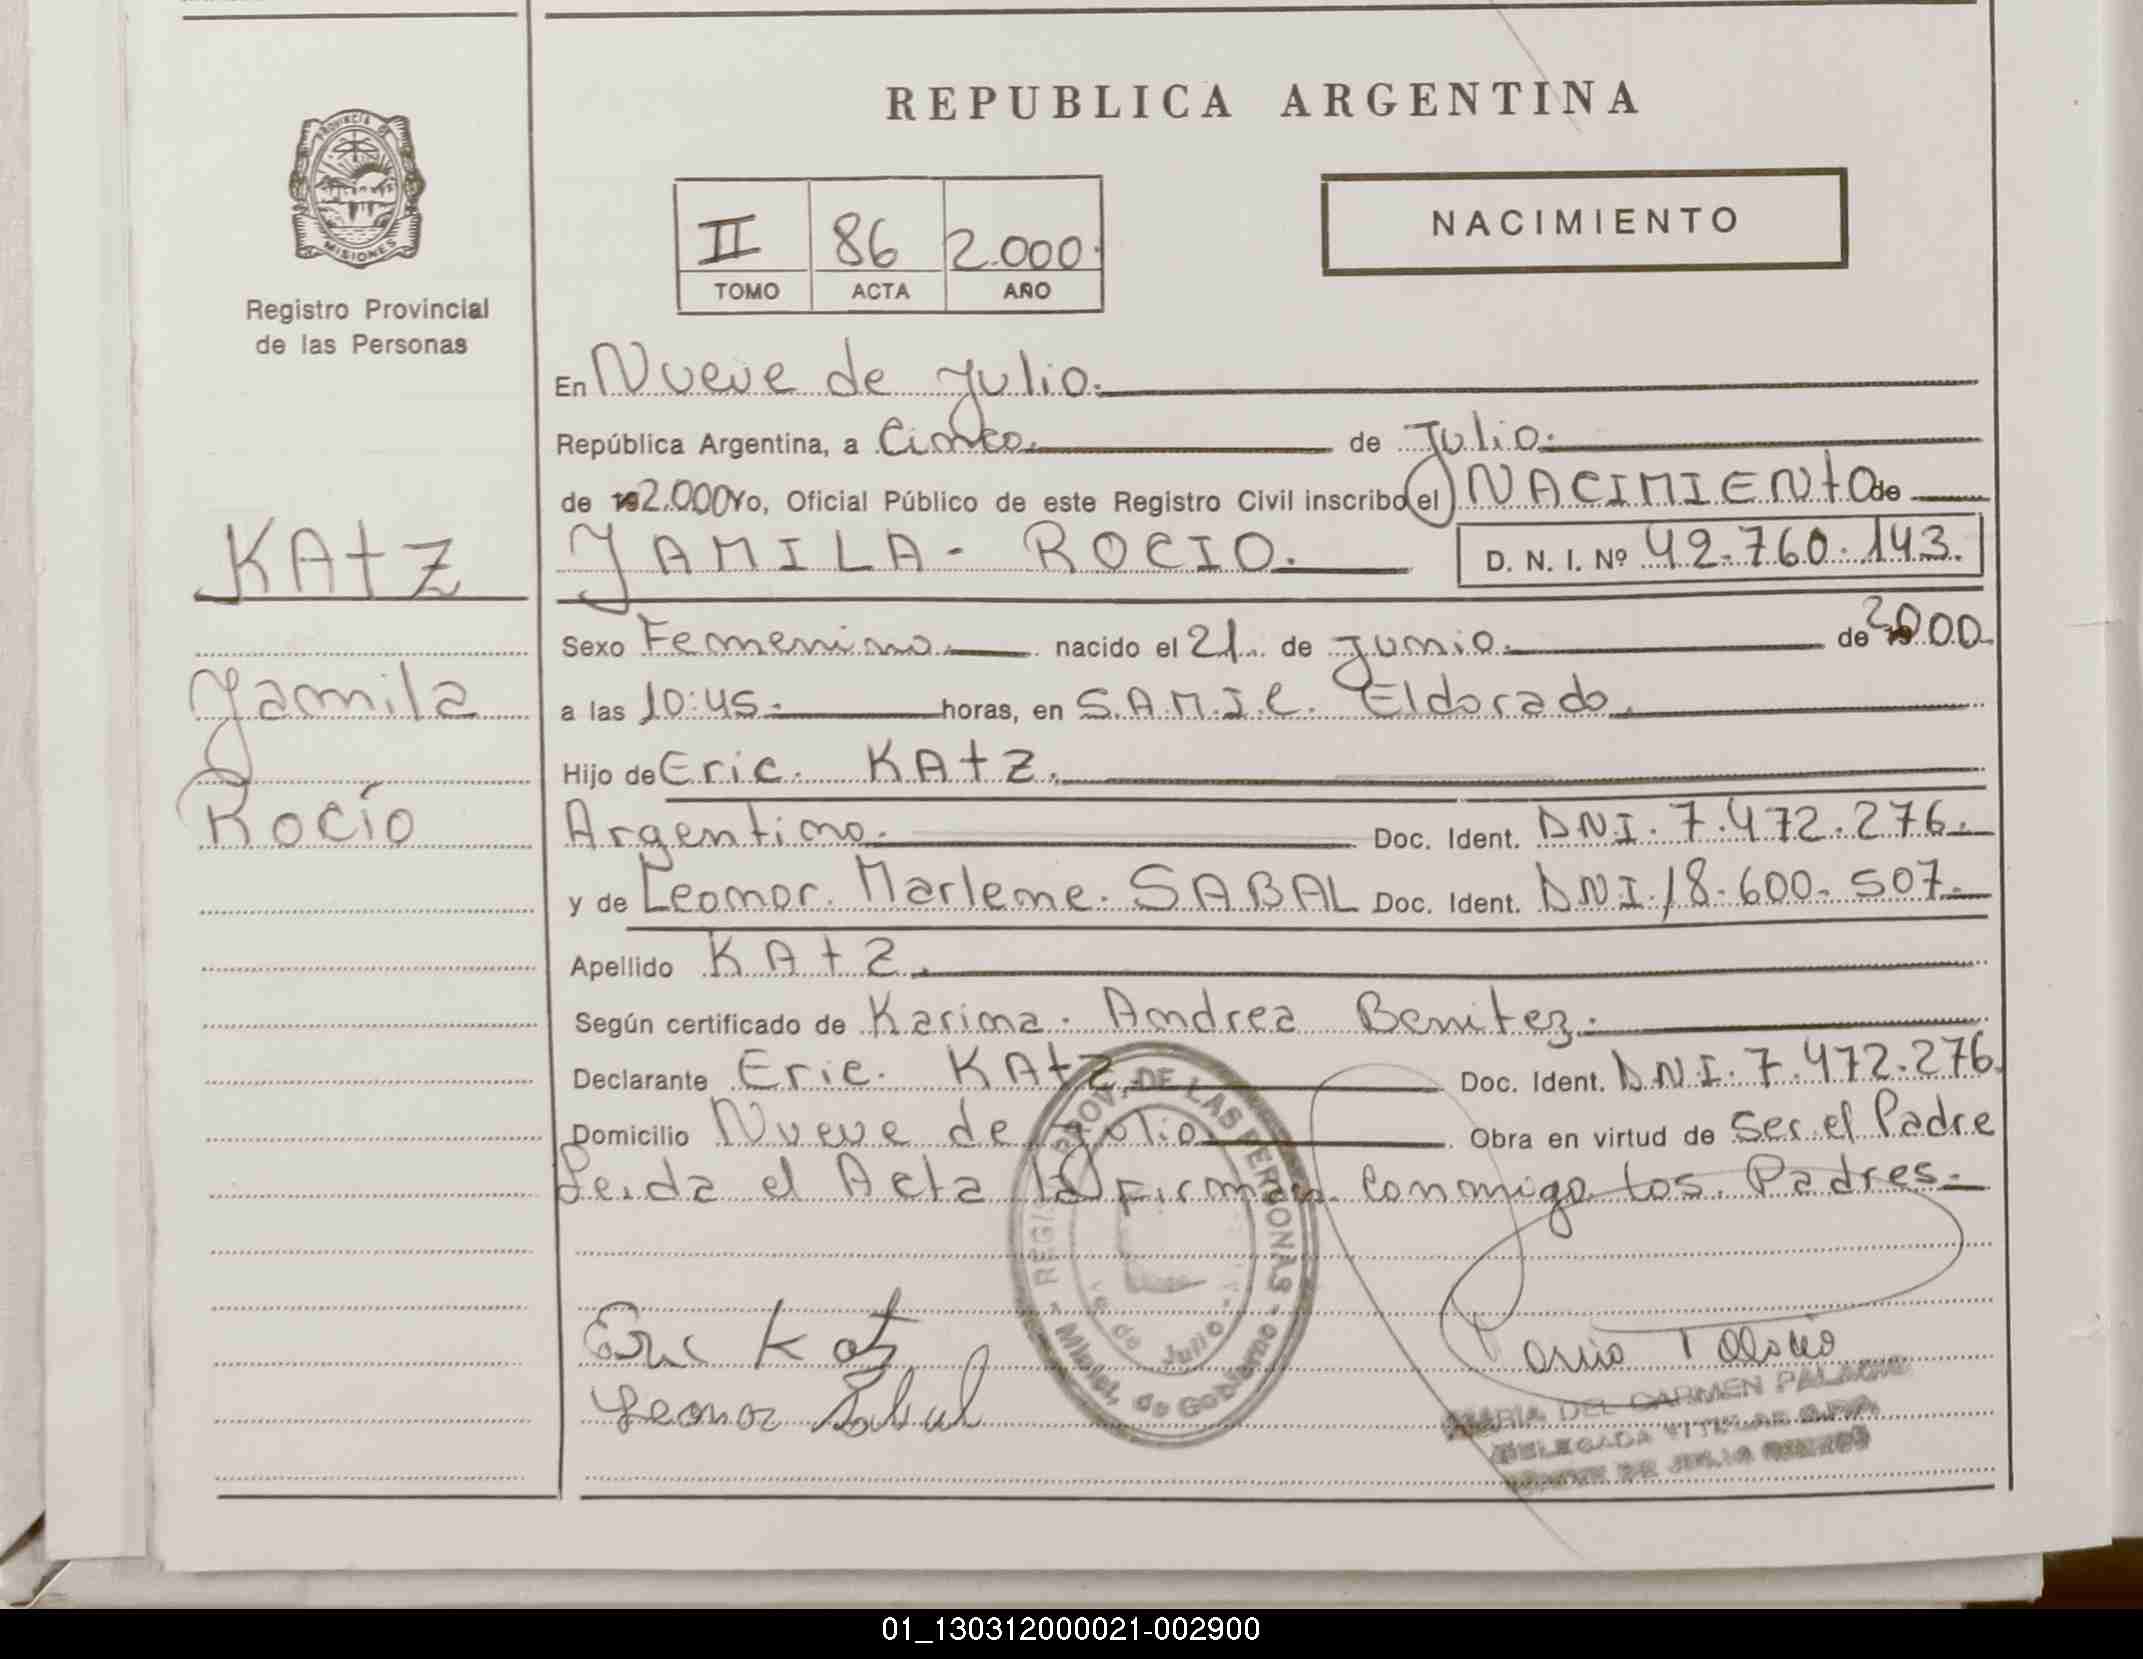 REPUBLICA ARGENTINA
PROVINCIA DE
MISIONES
Registro Provincial
de las Personas
II 86 2.000.
TOMO ACTA AÑO
NACIMIENTO
En Nueve de Julio.
República Argentina, a Cinco. de Julio.
de 192.000 Yo, Oficial Público de este Registro Civil inscribo el NACIMIENTO de
KATZ
YAMILA - ROCIO. D. N. I. Nº 42.760.143.
Sexo Femenino. nacido el 21 de Junio. de 192000
Yamila
a las 10:45. horas, en S.A.M.I.C. Eldorado.
Hijo de Eric. KATZ.
Rocío
Argentino. Doc. Ident. DNI. 7.472.276.
y de Leonor. Marlene. SABAL Doc. Ident. DNI. 18.600.507.
Apellido KATZ.
Según certificado de Karina. Andrea Benitez.
Declarante Eric. KATZ Doc. Ident. DNI. 7.472.276.
Domicilio Nueve de Julio Obra en virtud de Ser el Padre
Leida el Acta la Firman Conmigo Los Padres.
REGIS. PROV. DE LAS PERSONAS
de Julio
Minist. de Gobierno
Eric Katz
Leonor Sabal
MARIA DEL CARMEN PALACIO
DELEGADA TITULAR
DE JULIO
01_130312000021-002900